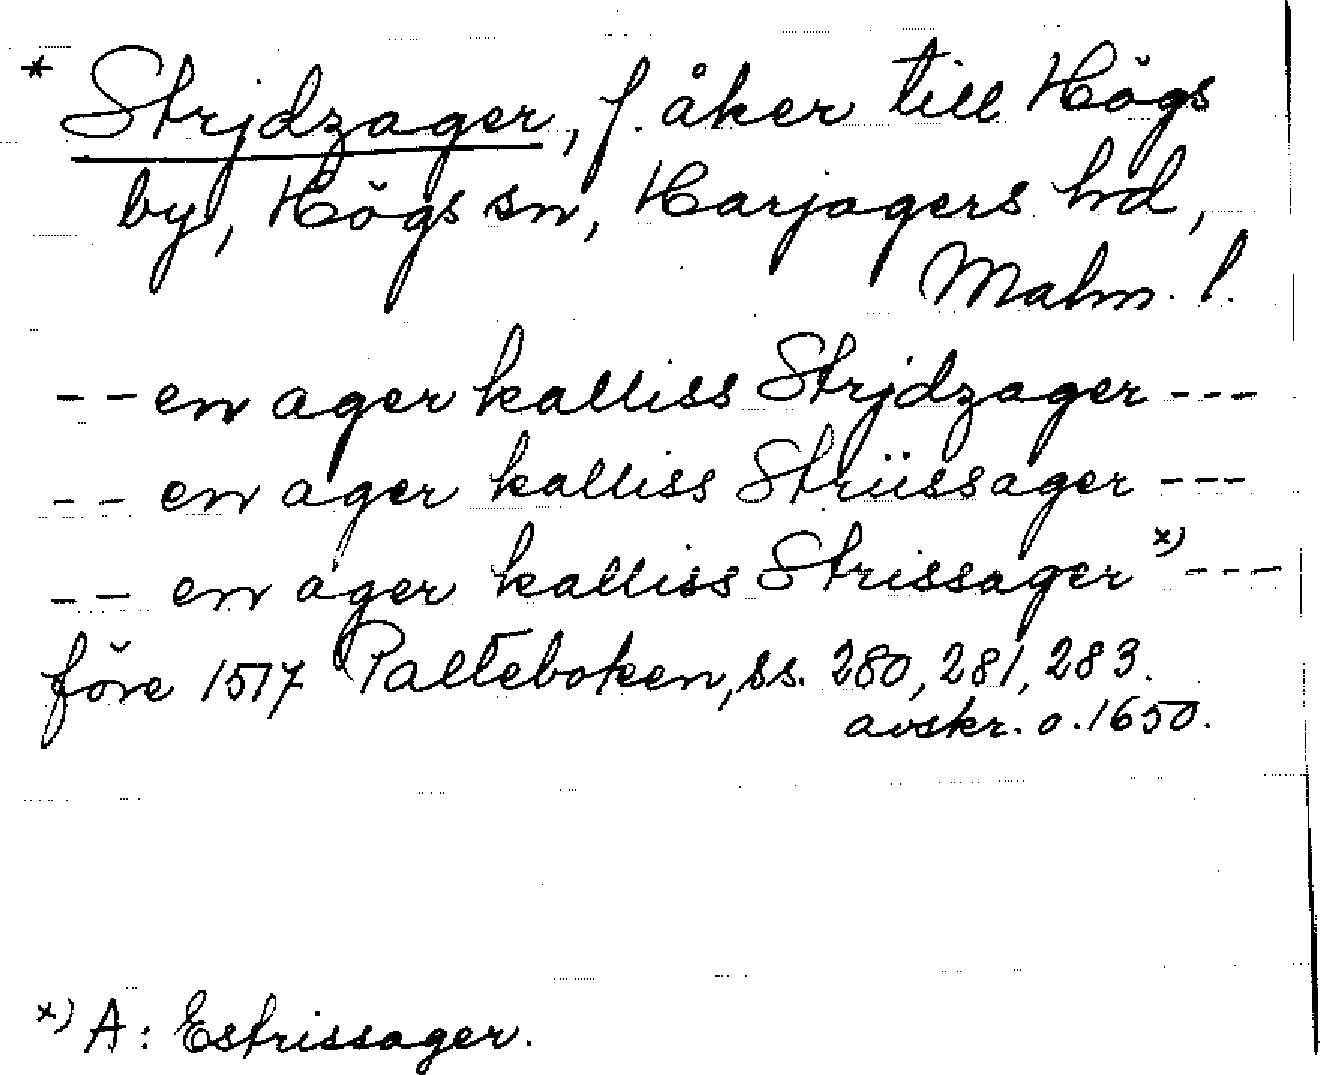 * Strjdzager, f. åker till Högs
by, Högs sn, Harjagers hd,
Malm. l.
-- en ager kalliss Strjdzager ---
-- en ager kalliss Strüssager ---
-- en ager kalliss Strissager x) ---
före 1517 Palteboken, ss. 280, 281, 283.
avskr. o. 1650.
x) A: Estrissager.